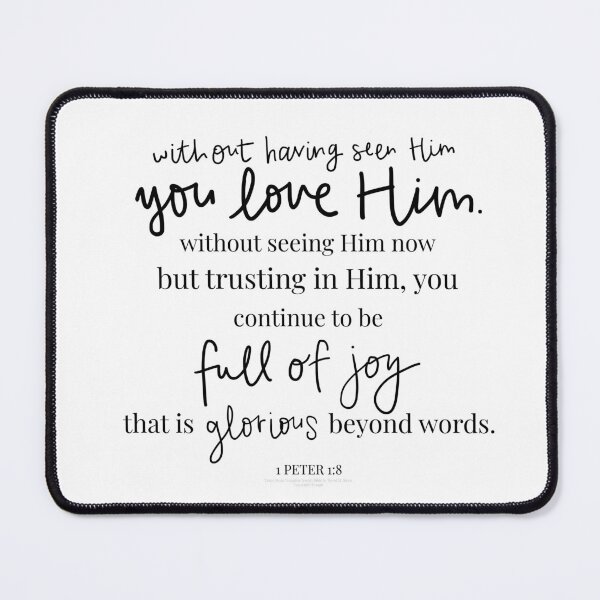 without having seen Him
you love Him.
without seeing Him now
but trusting in Him, you
continue to be
full of joy
that is glorious beyond words.
1 PETER 1:8